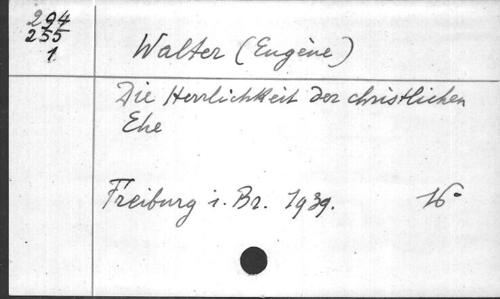 294
255
1
Walter (Eugène)
Die Herrlichkeit der christlichen
Ehe
Freiburg i. Br. 1939. 16°